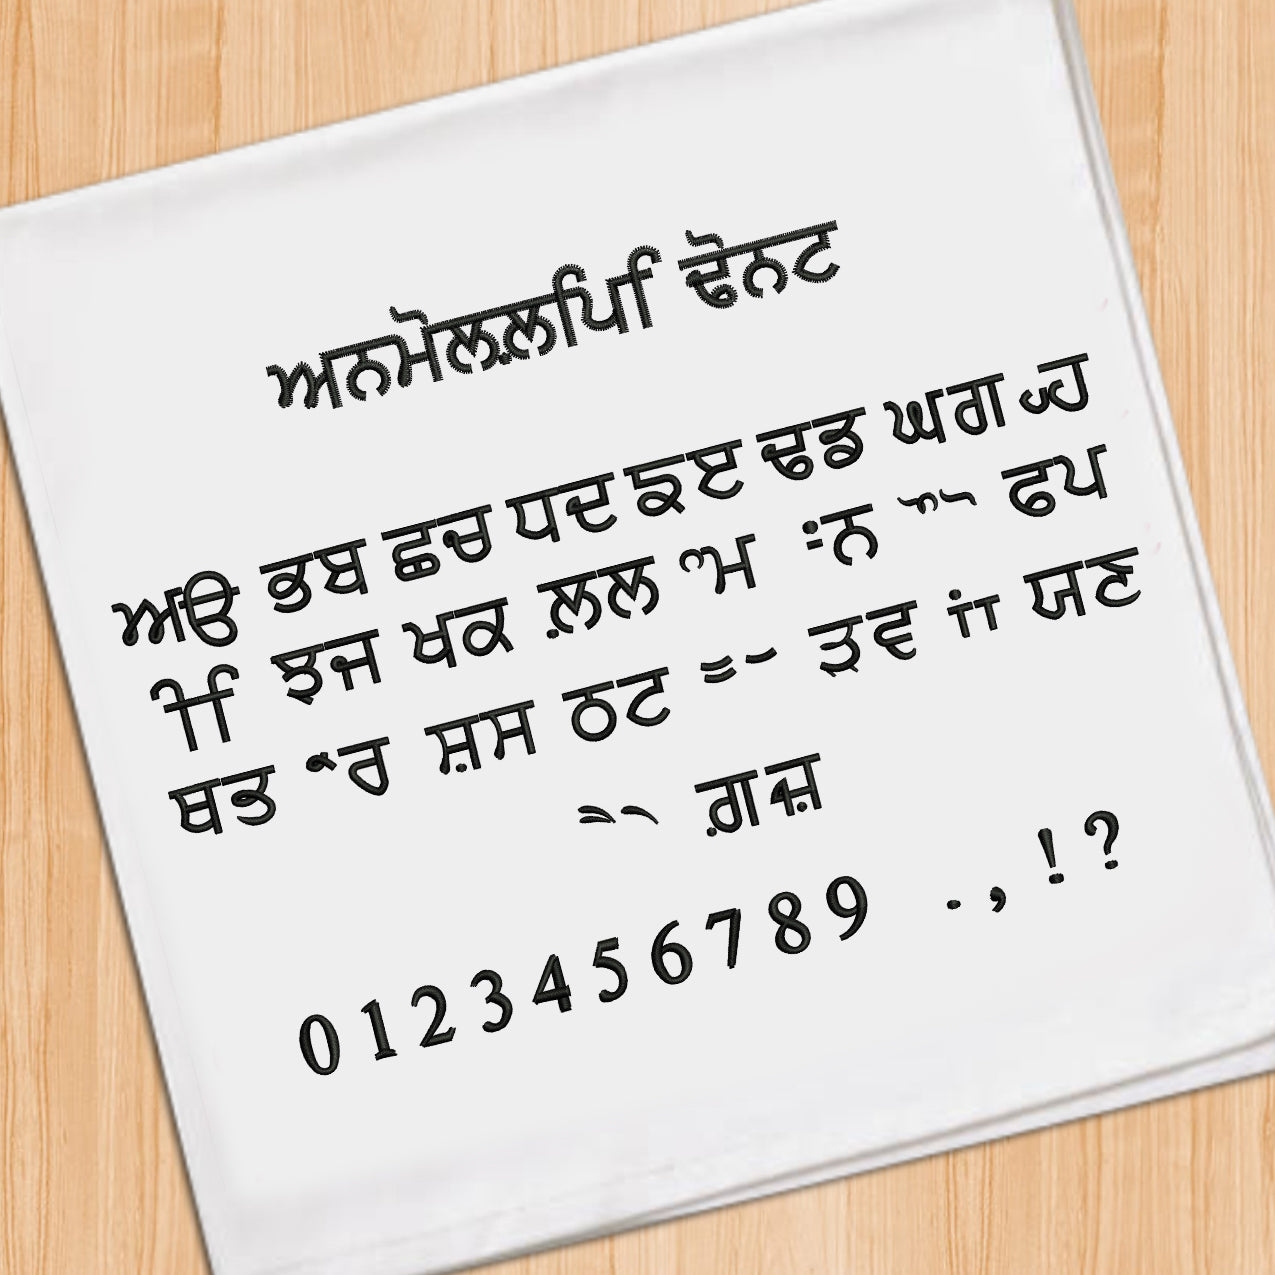 ਅਨਮੋਲਲ਼ਪਿਿ ਢੋਨਟ
ਅੳ ਭਬ ਛਚ ਧਦ ਡੲ ਢਡ ਘਗ ਹ
ੀਿ ਝਜ ਖਕ ਲ਼ਲ ਮ ਨ ਫਪ
ਥਤ ੰਰ ਸ਼ਸ ਠਟ ੂੁ ੜਵ ਾਂਾ ਯਣ
ੈੇ ਗ਼ਜ਼
0 1 2 3 4 5 6 7 8 9 . , ! ?